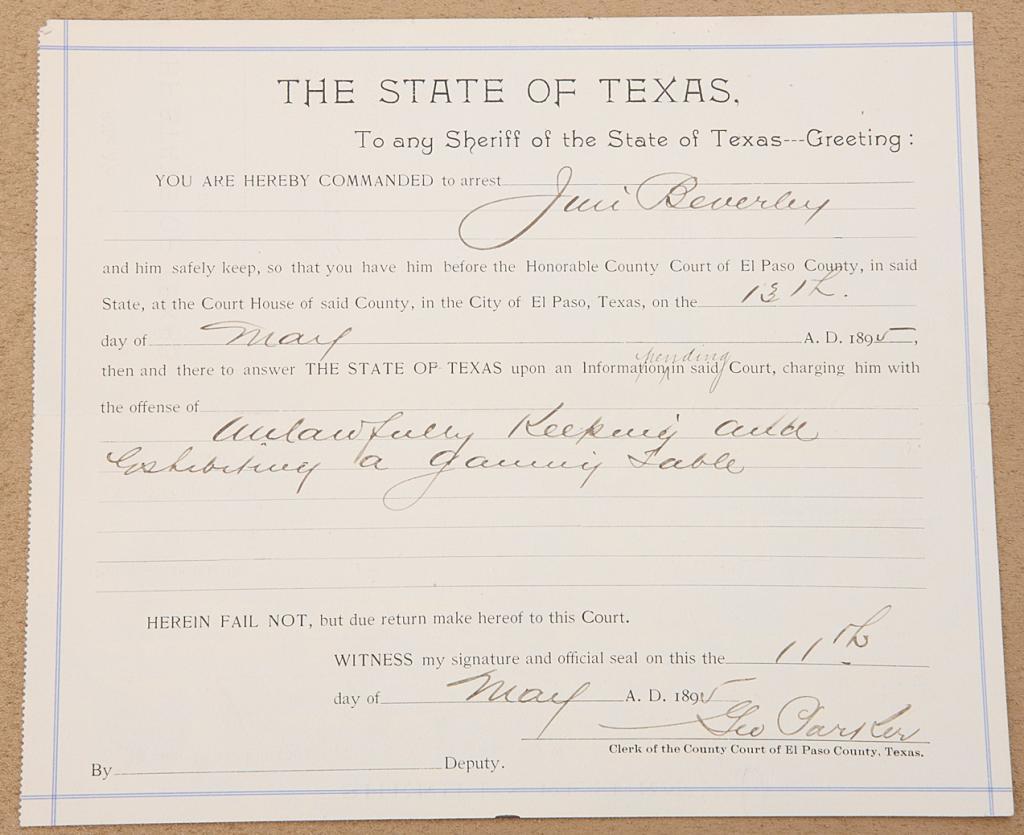 THE STATE OF TEXAS,
To any Sheriff of the State of Texas---Greeting:
YOU ARE HEREBY COMMANDED to arrest
Jim Beverley
and him safely keep, so that you have him before the Honorable County Court of El Paso County, in said
State, at the Court House of said County, in the City of El Paso, Texas, on the 13th.
day of May A. D. 1895,
pending
then and there to answer THE STATE OF TEXAS upon an Information in said Court, charging him with
the offense of
Unlawfully Keeping and
Exhibiting a gaming Table
HEREIN FAIL NOT, but due return make hereof to this Court.
WITNESS my signature and official seal on this the 11th
day of May A. D. 1895
Geo Parker
Clerk of the County Court of El Paso County, Texas.
By Deputy.